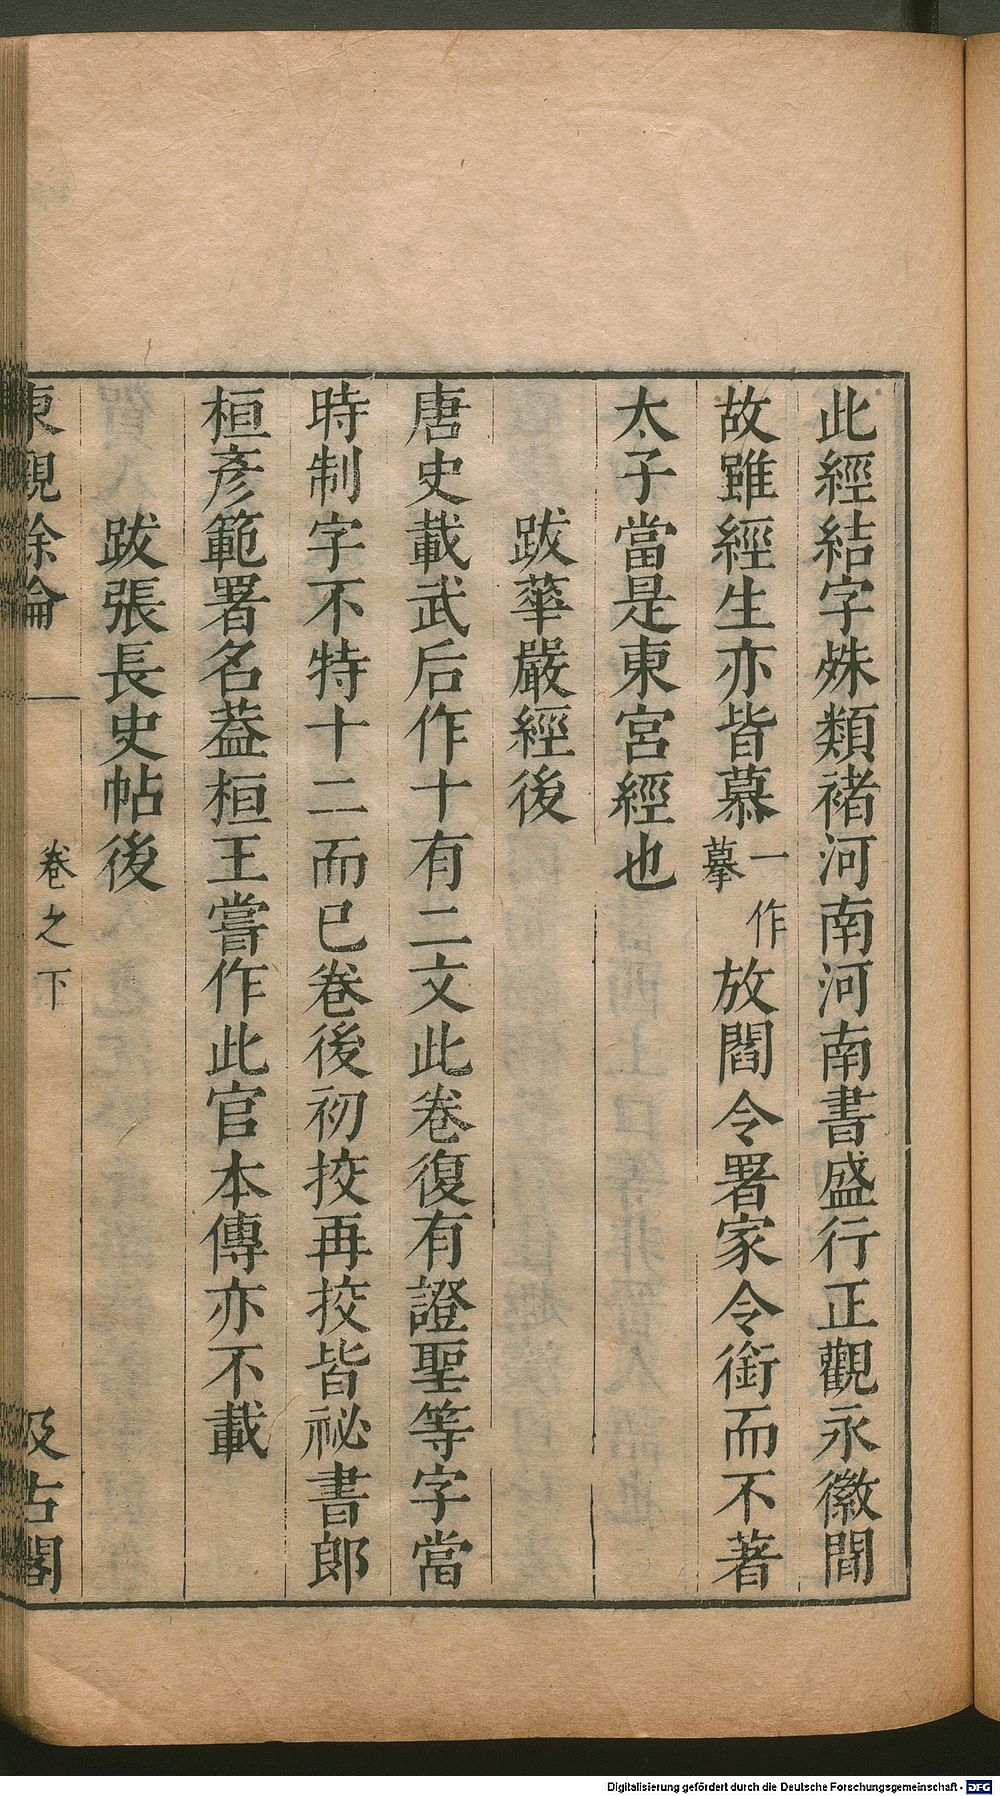 此經結字姝類褚河南河南書盛行正觀永徽間
故雖經生亦皆慕一作摹放閻令署家令銜而不著
太子當是東宮經也
跋華嚴經後
唐史載武后作十有二文此卷復有證聖等字當
時制字不特十二而已卷後初挍再挍皆祕書郎
桓彥範署名葢桓王嘗作此官本傳亦不載
跋張長史帖後
東觀餘論 卷之下 汲古閣
Digitalisierung gefördert durch die Deutsche Forschungsgemeinschaft - DFG